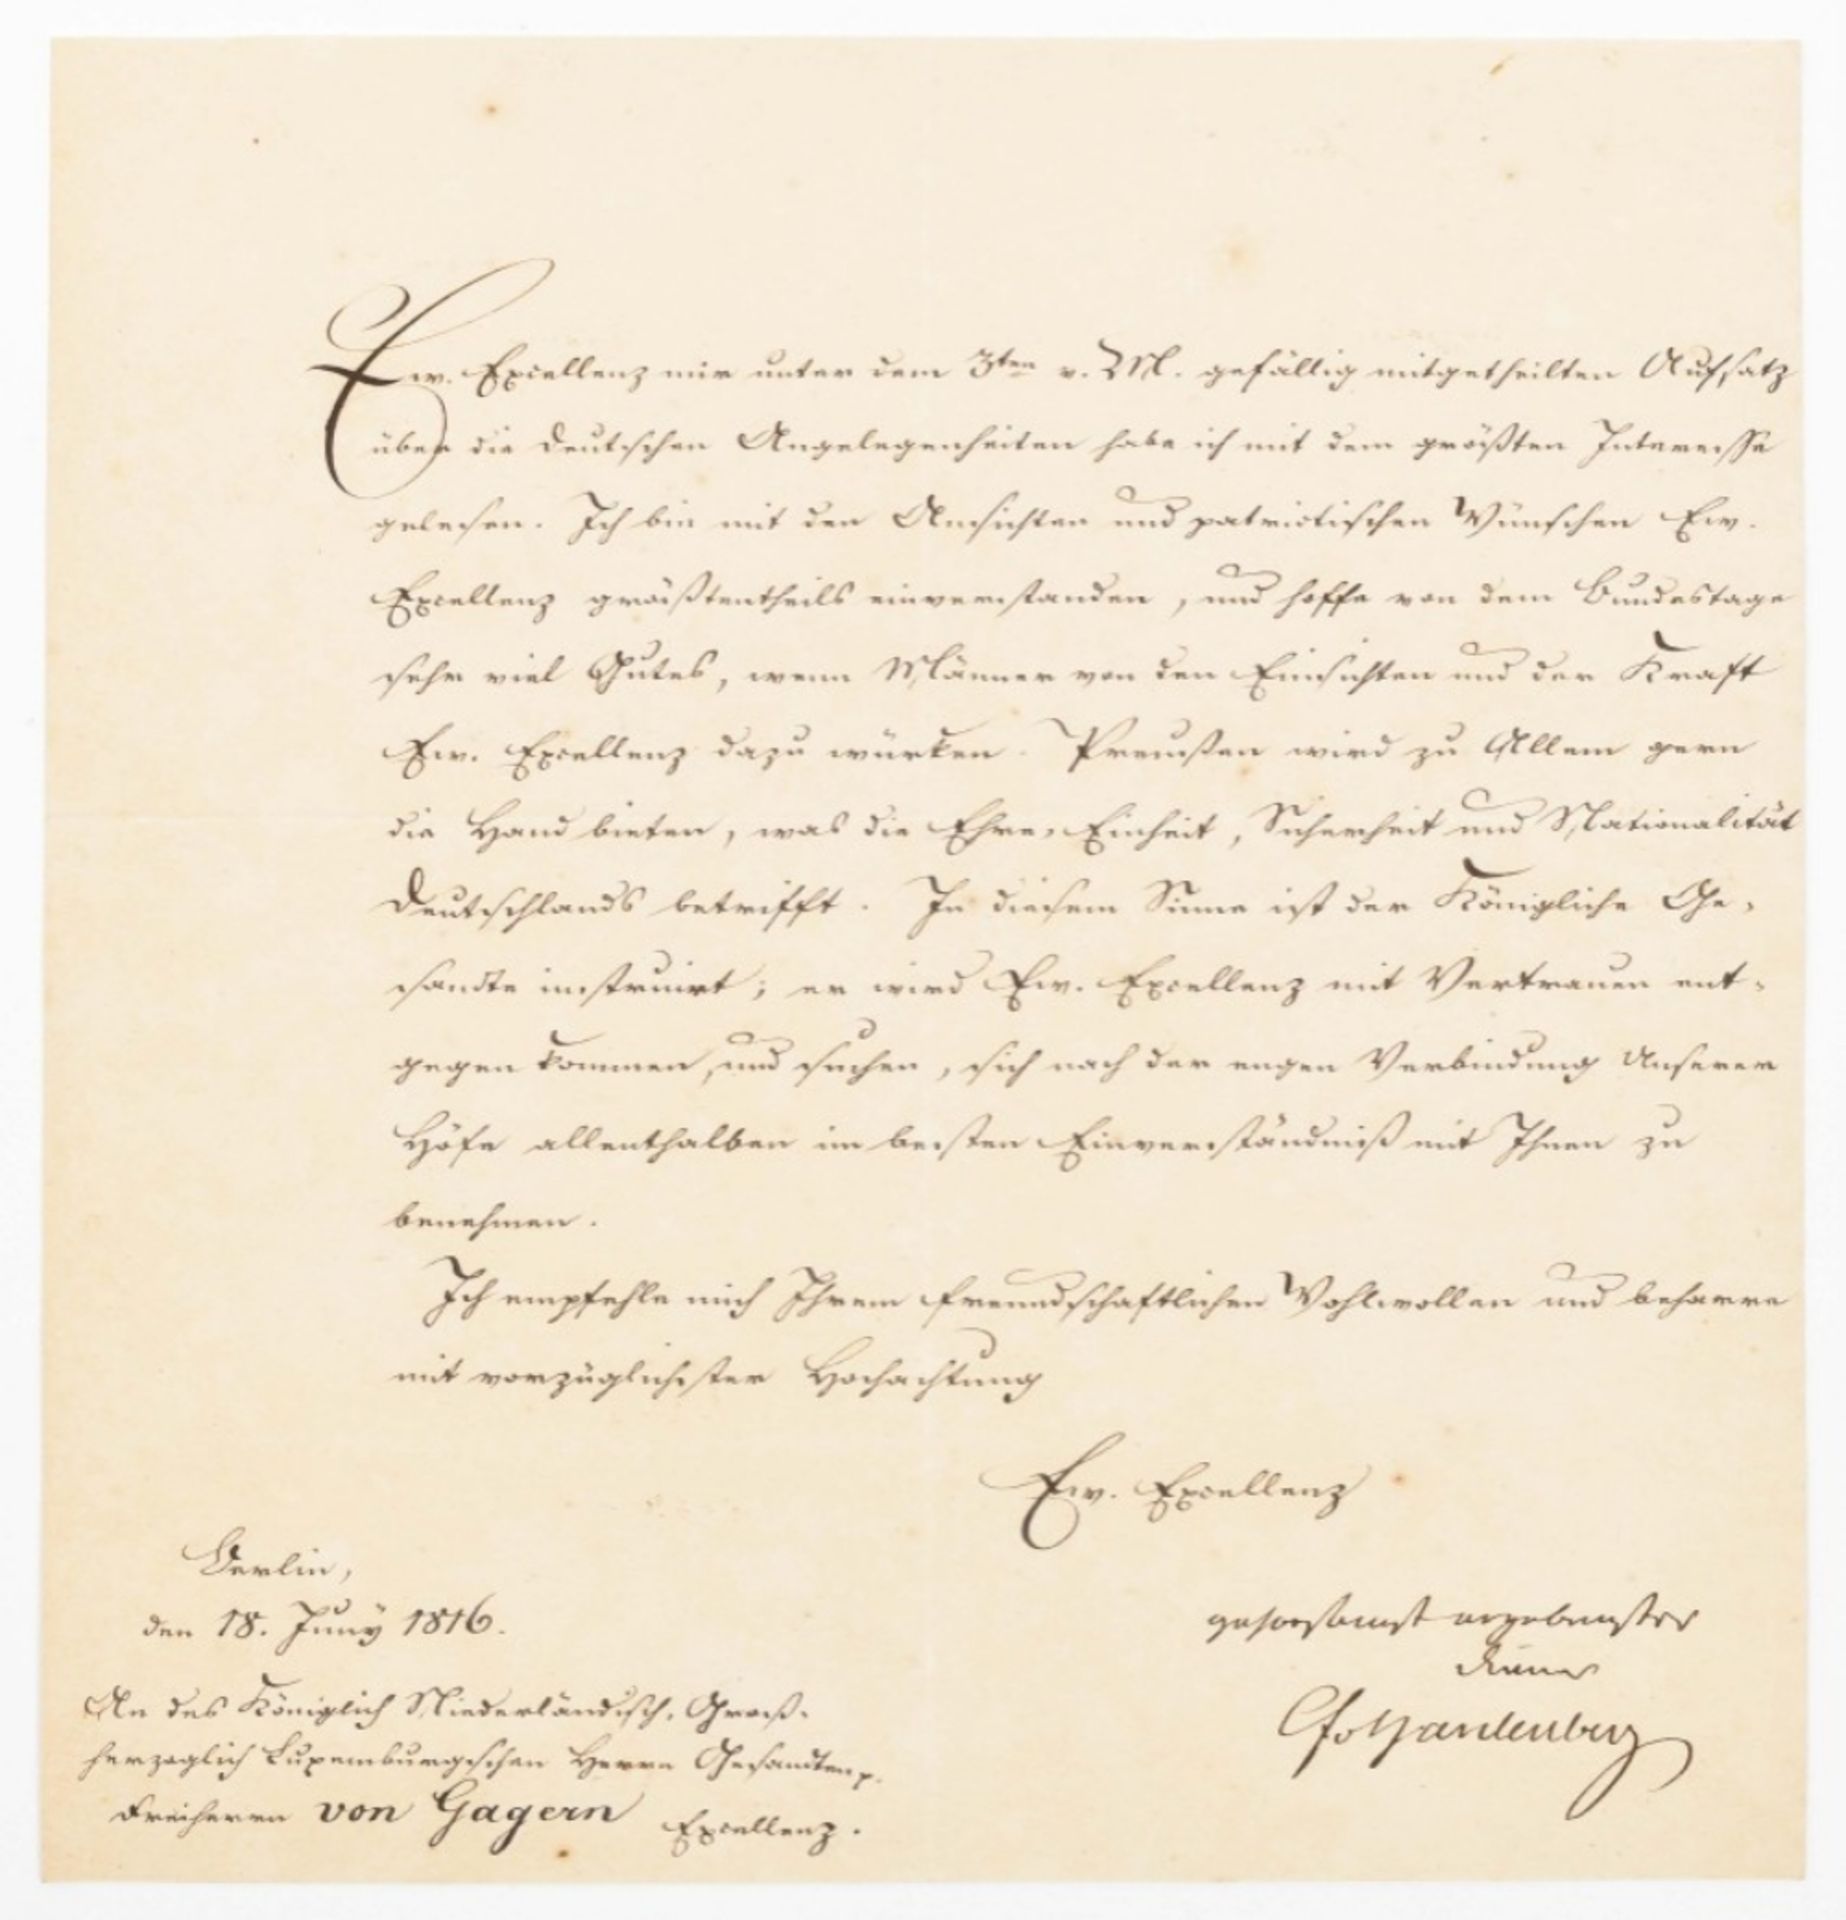 Ew. Excellenz mir unter dem 3ten v. M. gefällig mitgetheilten Aufsatz
über die deutschen Angelegenheiten habe ich mit dem größten Interesse
gelesen. Ich bin mit den Ansichten und patriotischen Wünschen Ew.
Excellenz größtentheils einverstanden, und hoffe von dem Bundestage
sehr viel Gutes, wenn Männer von den Einsichten und der Kraft
Ew. Excellenz dazu würken. Preußen wird zu Allem gern
die Hand bieten, was die Ehre, Einheit, Sicherheit und Nationalität
Deutschlands betrifft. In diesem Sinne ist der Königliche Ge-
sandte instruirt; er wird Ew. Excellenz mit Vertrauen ent-
gegen kommen, und suchen, sich nach der engen Verbindung Unserer
Höfe allenthalben im besten Einverständniß mit Ihnen zu
benehmen.
Ich empfehle mich Ihrem freundschaftlichen Wohlwollen und beharre
mit vorzüglichster Hochachtung
Ew. Excellenz
Berlin,
den 18. Juny 1816.
gehorsamst ergebenster
Diener
CfvHardenberg
An des Königlich Niederländisch, Groß-
herzoglich Luxemburgischen Herrn Gesandten p.
Freiherrn von Gagern Excellenz.